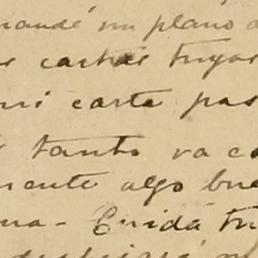 mandé un plano
cartas tuyas
mi carta pas
tanto va co
mente algo bue
na - Cuida tu